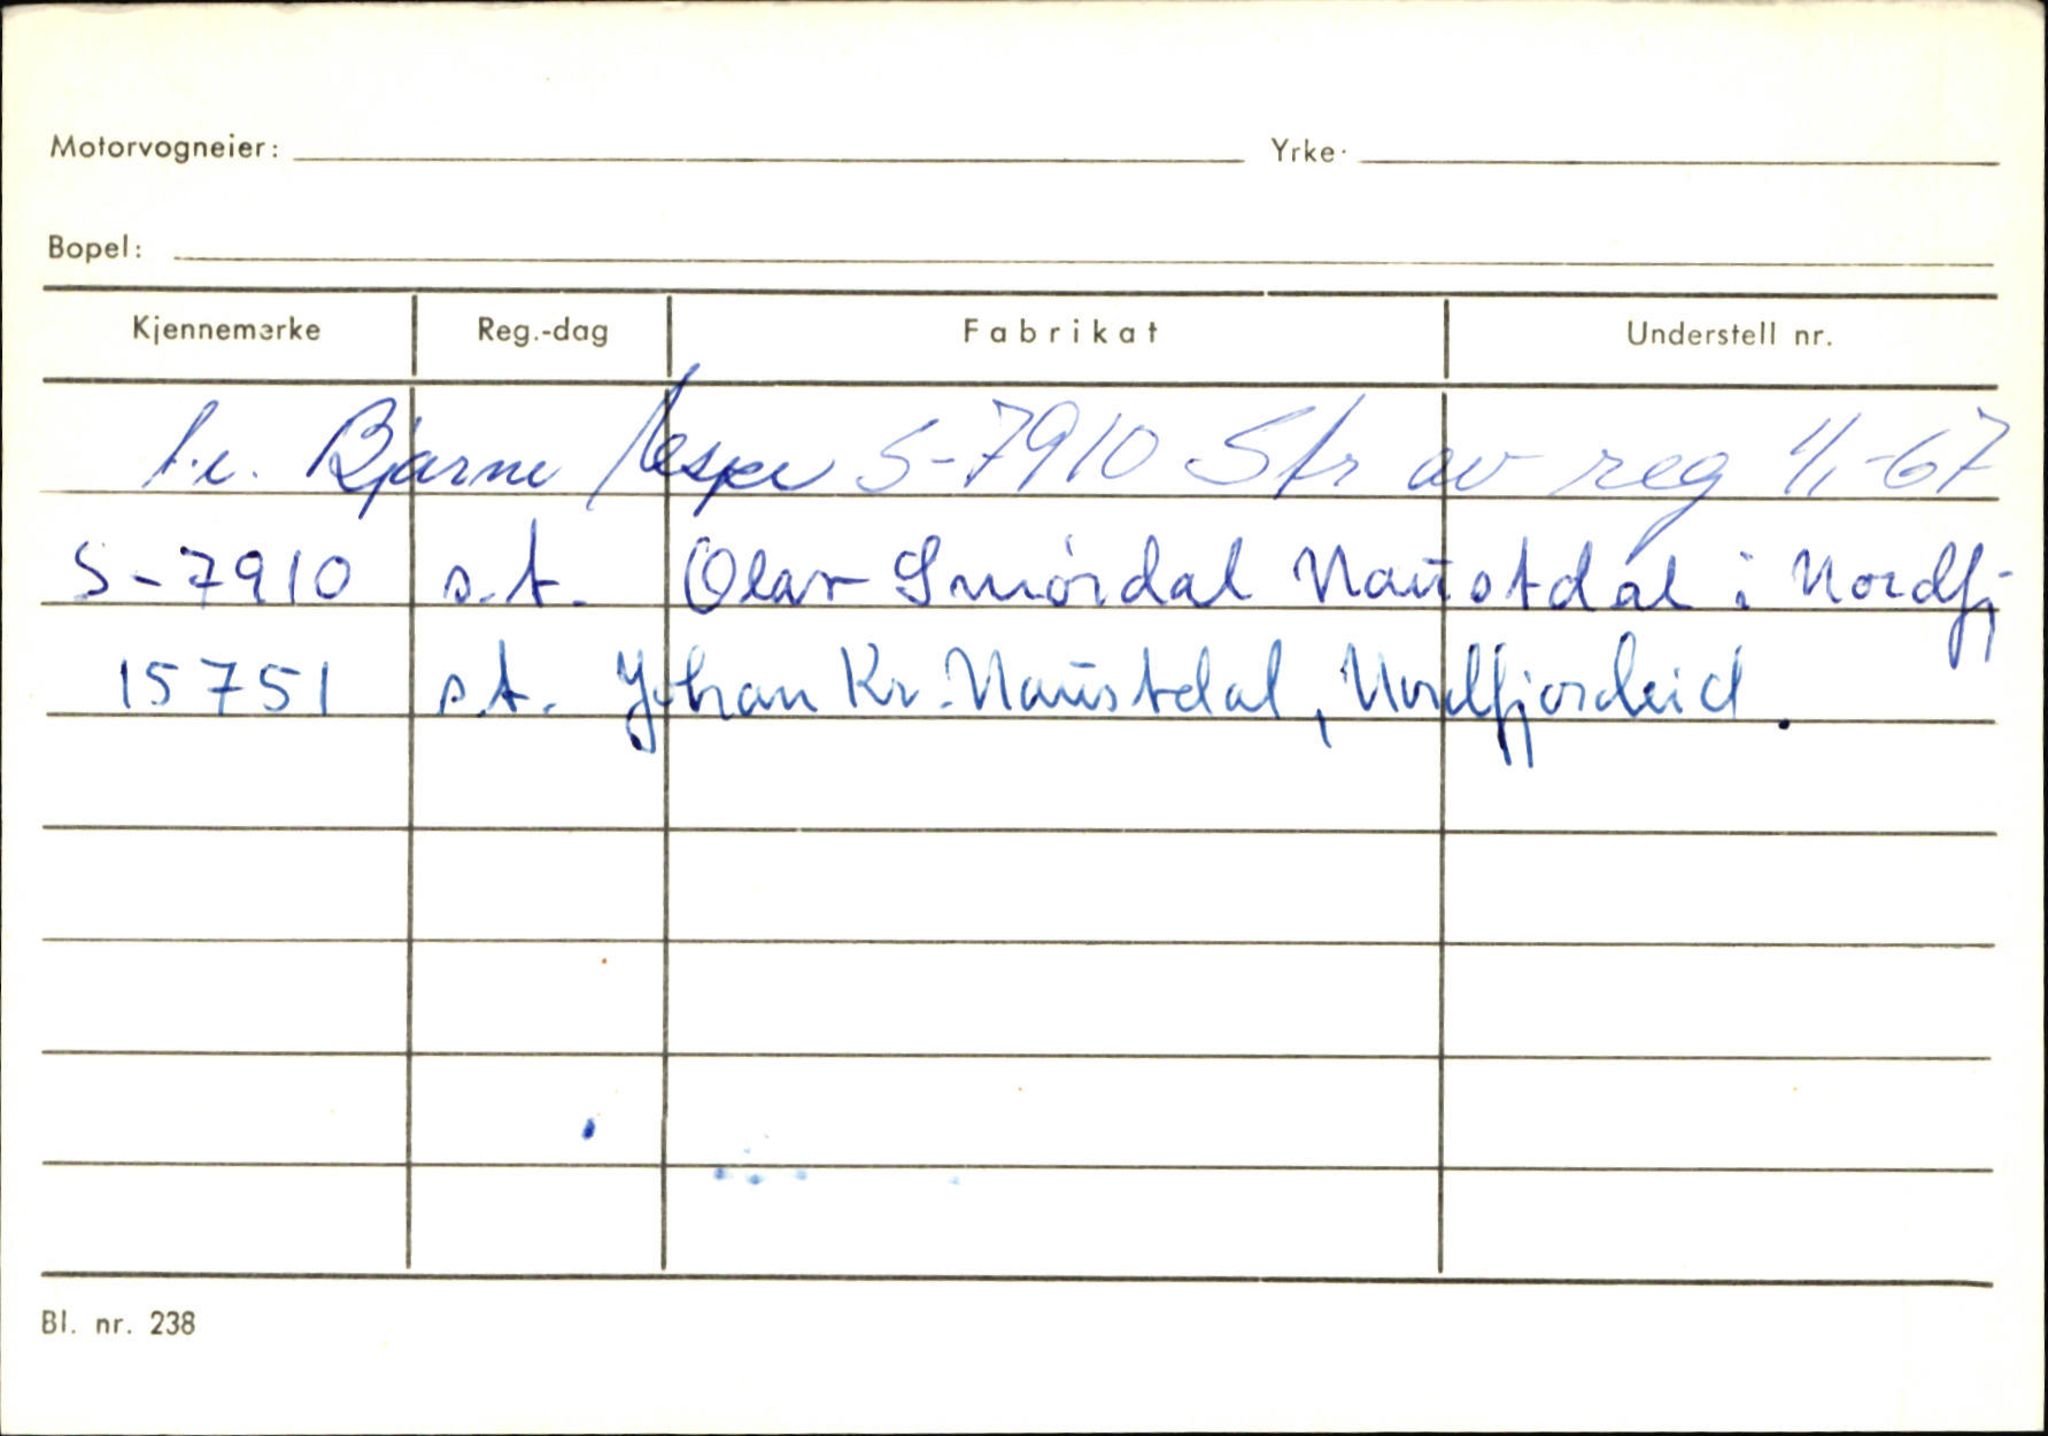 Motorvogneier: Yrke.
Bopel:
Kjennemerke Reg.-dag Fabrikat Understell nr.
Bjarne S-7910 Str av reg 4/1-67
S-7910 s.t. Olav Smørdal Naustdal i Nordfj
15751 s.t. Johan Kr. Naustdal, Nordfjordeid.
Bl. nr. 238